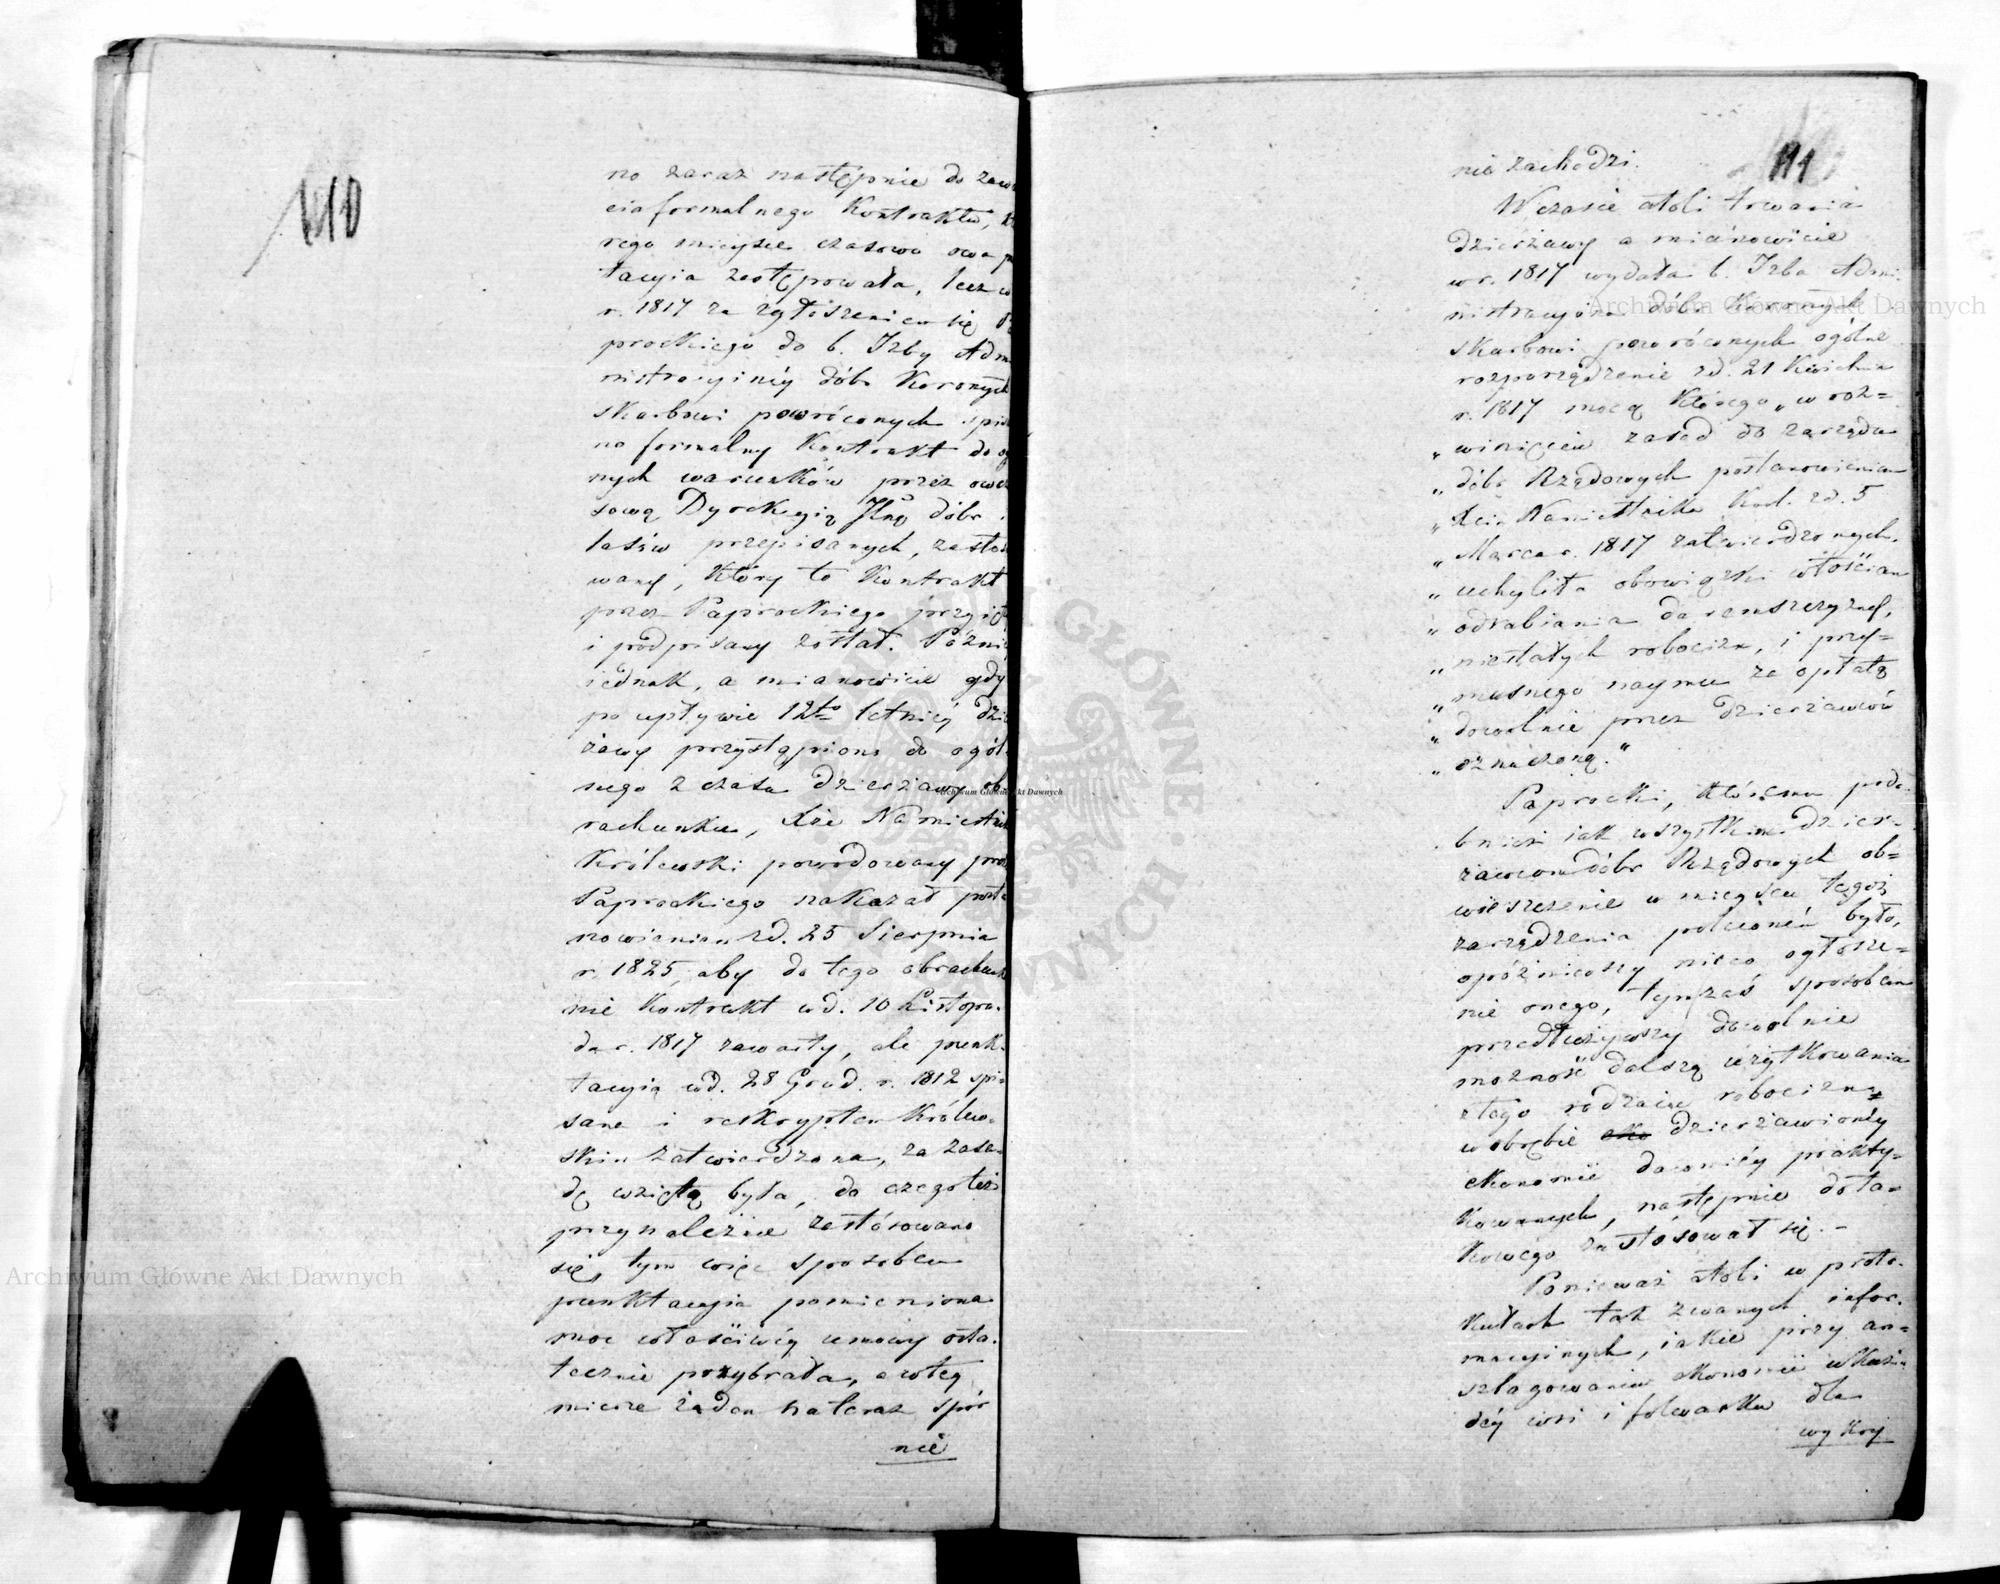 110
no zaraz następnie do zaw
cia formalnego Kontraktu,
rego mieysce czasowo owa
tacyia zastępowała, lecz w
r. 1817 za zgłoszeniem się
prockiego do b. Izby Adm
nistracyinéy dóbr Koronnych
skarbowi powróconych spisa
no formalny Kontrakt do
nych warunków przez owcz
sową Dyrekcyią Jlną dóbr
lasów przepisanych, zastoso
wany, który to Kontrakt
przez Paprockiego przyięt
i podpisany został. Pózni
iednak, a mianowicie gdy
po upływie 12to letniéy dzie
żawy przystąpiono do ogól
nego z czasu dzierżawy ob
rachunku, Xże Namiestnik
Królewski powodowany prze
Paprockiego nakazał posta
nowieniem z d. 25 Sierpnia
r. 1825, aby do tego obrachunku
nie Kontrakt w d. 10 Listopa-
da r. 1817 zawarty, ale punk-
tacyia w d. 28 Grud. r. 1812 spi-
sana i reskryptem Królew-
skim zatwierdzona, za zasa-
dę wziętą była, do czego też
przynależnie zastósowano
się, tym więc sposobem
punktacyia pomieniona
moc właściwéy umowy osta-
tecznie przybrała, a w téy
mierze żaden na teraz spór
nie
111
nie zachodzi.
W czasie atoli trwania
dzierżawy a mianowicie
w r. 1817 wydała b. Izba Admi-
nistracyina dóbr Koronnych
skarbowi powróconych ogólne
rozporządzenie z d. 21 Kwietnia
r. 1817 mocą którego „w roz=
„winięciu zasad do zarządu
„dóbr Rządowych postanowieniem
„Xcia Namiestnika Król. z d. 5
„Marca r. 1817 zatwierdzonych,
„uchyliła obowiązki włościan
„odrabiania daremszczyzny,
„niestałych robocizn, i przy=
„musnego naymu za opłatą
„dowolnie przez dzierżawców
„oznaczoną."
Paprocki, któremu podo-
bnież iak wszystkim dzier-
żawcom dóbr Rządowych ob=
wieszczenie w mieyscu tegoż
zarządzenia polecone było,
opóźniwszy nieco ogłosze=
nie onego, tymżeć sposobem
przedłużywszy dowolnie
możność dalszą użytkowania
z tego rodzaiu robocizny
w obrębie dzierżawionéy
ekonomii dawniéy prakty=
kowanych, następnie do ta=
kowego zastósował się. –
Ponieważ atoli w proto-
kułach tak zwanych infor-
macyinych, iakie przy an=
szlagowaniu ekonomii w każ-
déy wsi i folwarku dla
wykry
Archiwum Główne Akt Dawnych
Archiwum Główne Akt Dawnych
Archiwum Główne Akt Dawnych